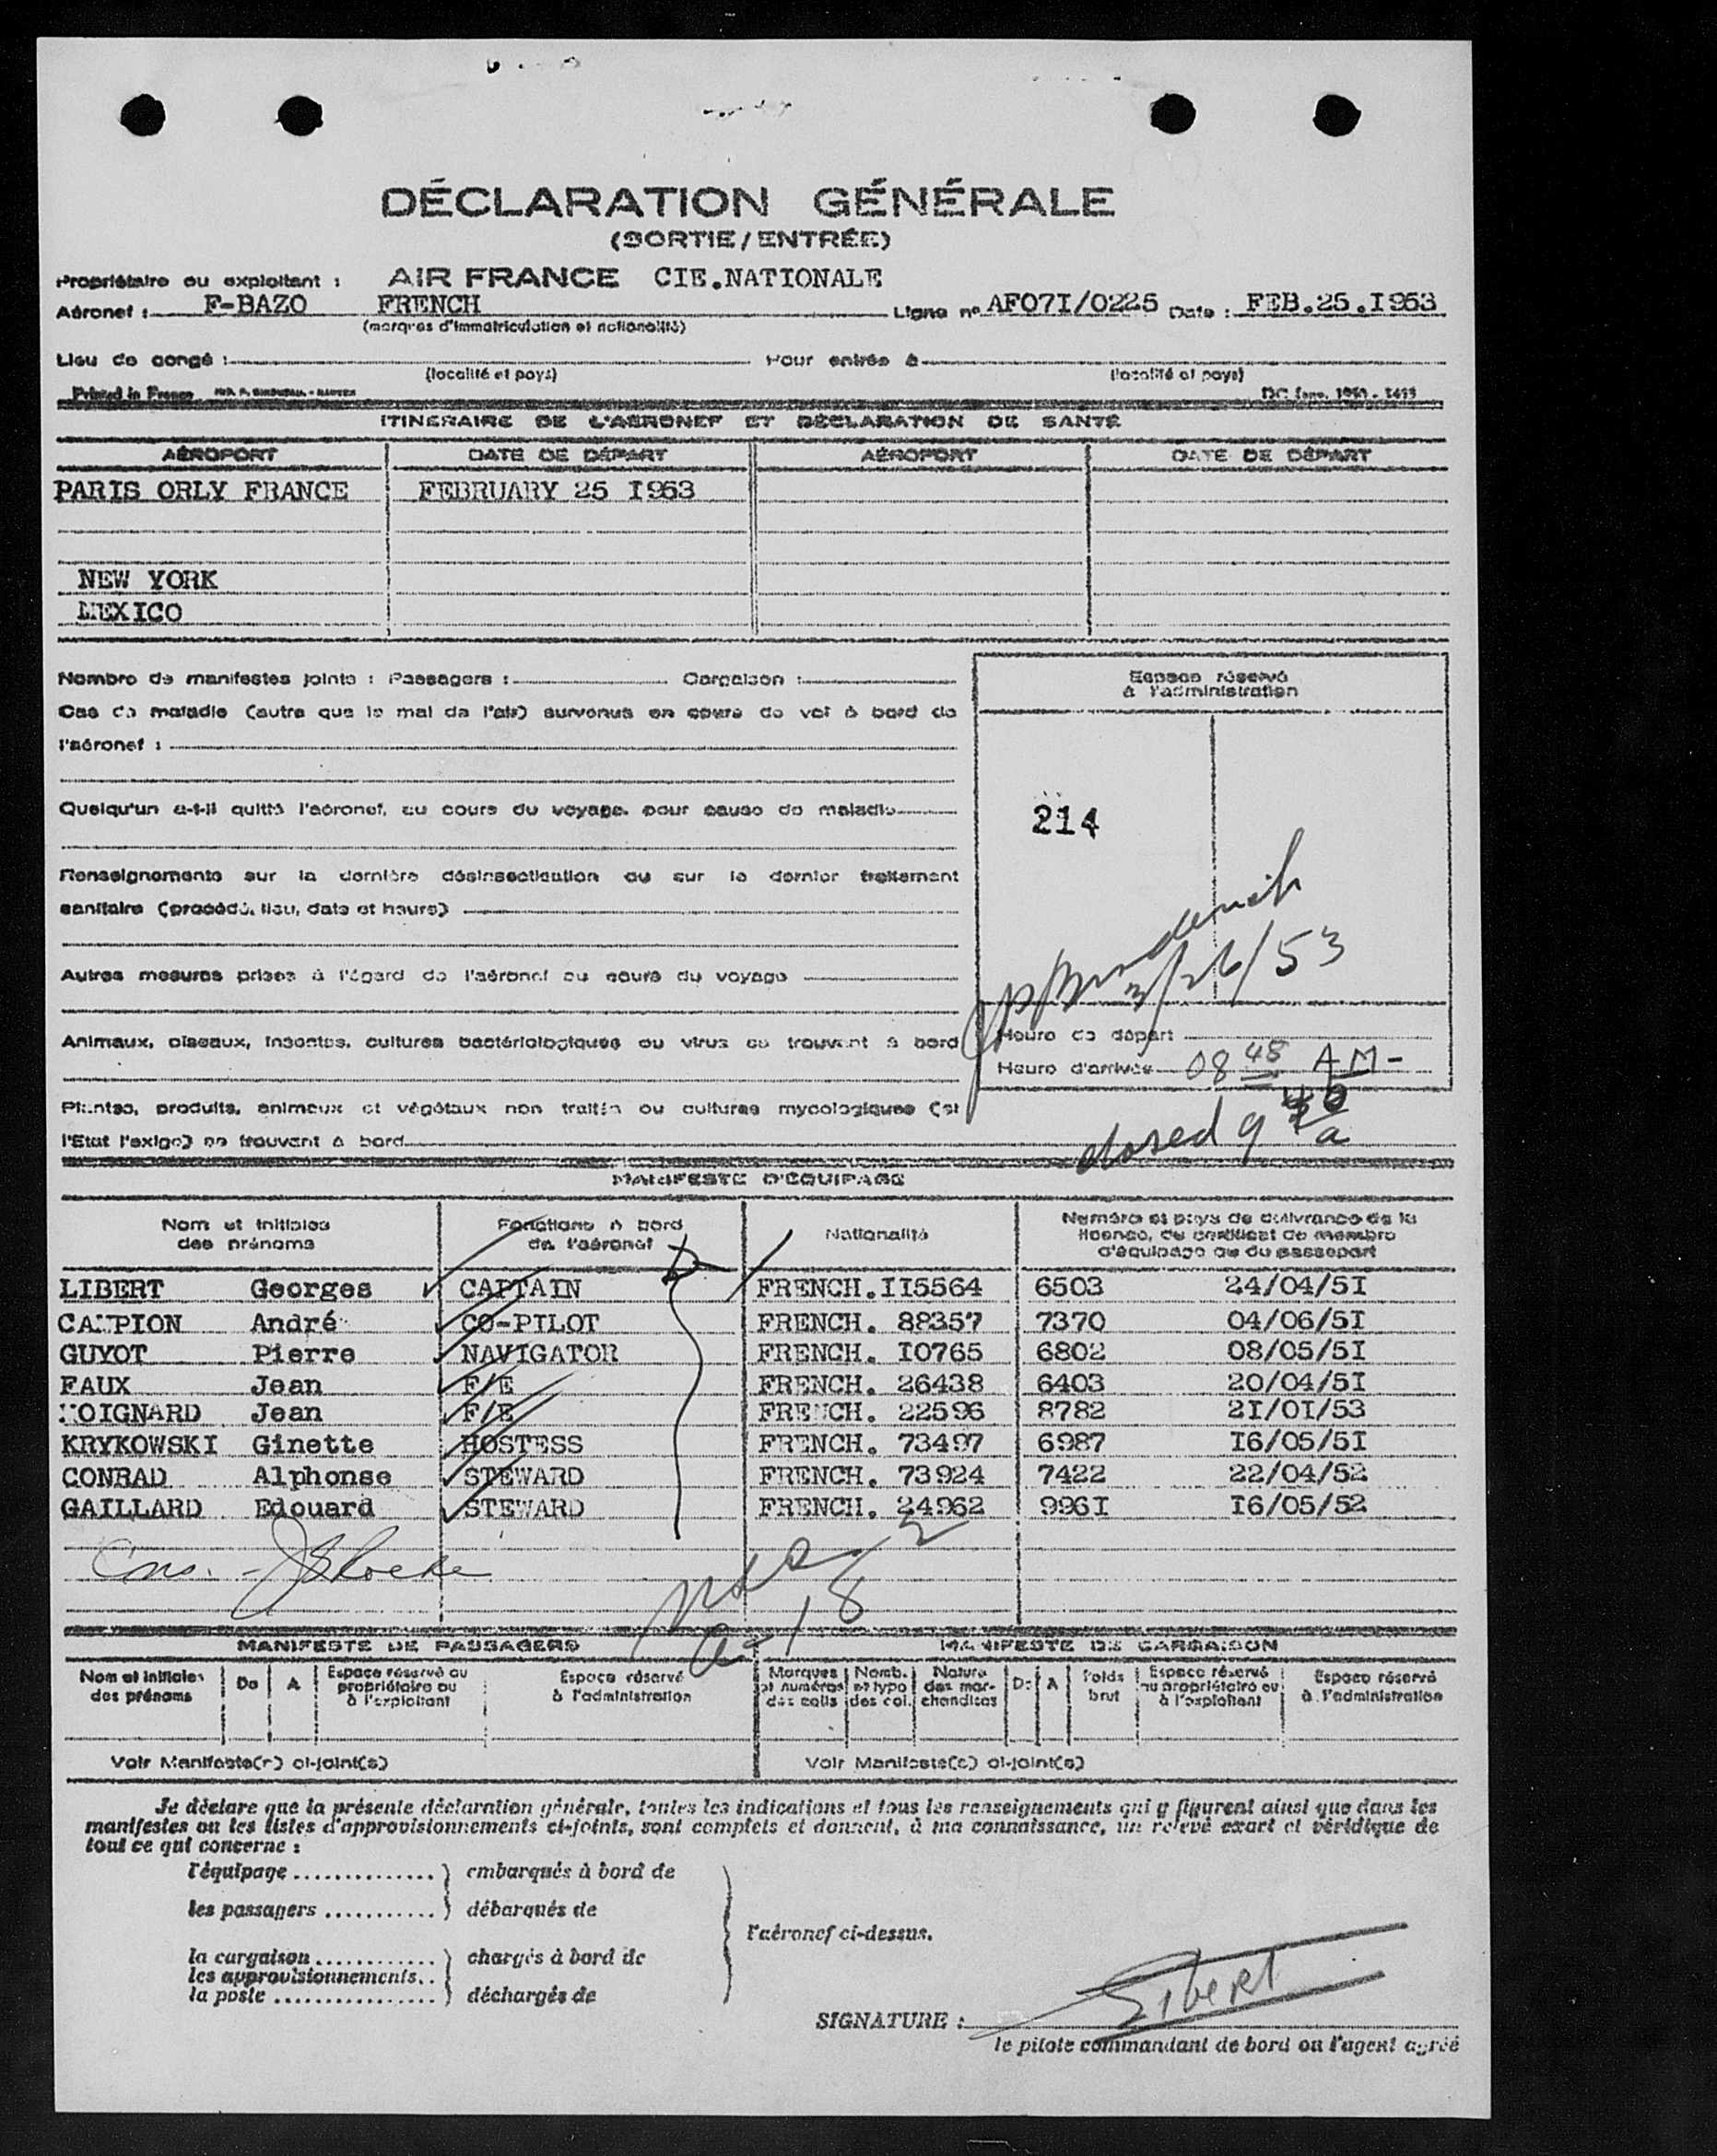 DÉCLARATION GÉNÉRALE
(SORTIE/ENTRÉE)
Propriétaire ou exploitant : AIR FRANCE CIE.NATIONALE
Aéronef : F-BAZO FRENCH Ligne n° AF07I/0225 Date : FEB.25.I953
(marques d'immatriculation et nationalité)
Lieu de congé : Pour entrée à
(localité et pays) (localité et pays)
Printed in France
ITINÉRAIRE DE L'AÉRONEF ET DÉCLARATION DE SANTÉ
AÉROPORT DATE DE DÉPART AÉROPORT DATE DE DÉPART
PARIS ORLY FRANCE FEBRUARY 25 I953
NEW YORK
MEXICO
Nombre de manifestes joints : Passagers : Cargaison :
Espace réservé
à l'administration
Cas de maladie (autre que le mal de l'air) survenus en cours de vol à bord de
l'aéronef :
Quelqu'un a-t-il quitté l'aéronef, au cours du voyage, pour cause de maladie
214
Renseignements sur la dernière désinsectisation ou sur le dernier traitement
sanitaire (procédé, lieu, date et heure)
/26/53
Autres mesures prises à l'égard de l'aéronef au cours du voyage
Heure de départ
Animaux, oiseaux, insectes, cultures bactériologiques ou virus se trouvant à bord
Heure d'arrivée 08 48 AM-
Plantes, produits, animaux et végétaux non traités ou cultures mycologiques (si
l'Etat l'exige) se trouvant à bord
closed 9 a
MANIFESTE D'ÉQUIPAGE
Nom et initiales des prénoms Fonctions à bord de l'aéronef Nationalité Numéro et pays de délivrance de la licence, du certificat de membre d'équipage ou du passeport
LIBERT Georges CAPTAIN FRENCH.II5564 6503 24/04/5I
CAMPION André CO-PILOT FRENCH. 88357 7370 04/06/5I
GUYOT Pierre NAVIGATOR FRENCH. I0765 6802 08/05/5I
FAUX Jean F/E FRENCH. 26438 6403 20/04/5I
MOIGNARD Jean F/E FRENCH. 22596 8782 2I/0I/53
KRYKOWSKI Ginette HOSTESS FRENCH. 73497 6987 I6/05/5I
CONRAD Alphonse STEWARD FRENCH. 73924 7422 22/04/52
GAILLARD Edouard STEWARD FRENCH. 24962 996I I6/05/52
MANIFESTE DE PASSAGERS MANIFESTE DE CARGAISON
Nom et initiales des prénoms De A Espace réservé au propriétaire ou à l'exploitant Espace réservé à l'administration Marques et numéros des colis Nomb. et type des col. Nature des marchandises De A Poids brut Espace réservé au propriétaire ou à l'exploitant Espace réservé à l'administration
Voir Manifeste(s) ci-joint(s) Voir Manifeste(s) ci-joint(s)
Je déclare que la présente déclaration générale, toutes les indications et tous les renseignements qui y figurent ainsi que dans les
manifestes ou les listes d'approvisionnements ci-joints, sont complets et donnent, à ma connaissance, un relevé exact et véridique de
tout ce qui concerne :
l'équipage .............. } embarqués à bord de
les passagers ........... } débarqués de
l'aéronef ci-dessus.
la cargaison ............ } chargés à bord de
les approvisionnements..
la poste ................. } déchargés de
SIGNATURE : Libert
le pilote commandant de bord ou l'agent agréé